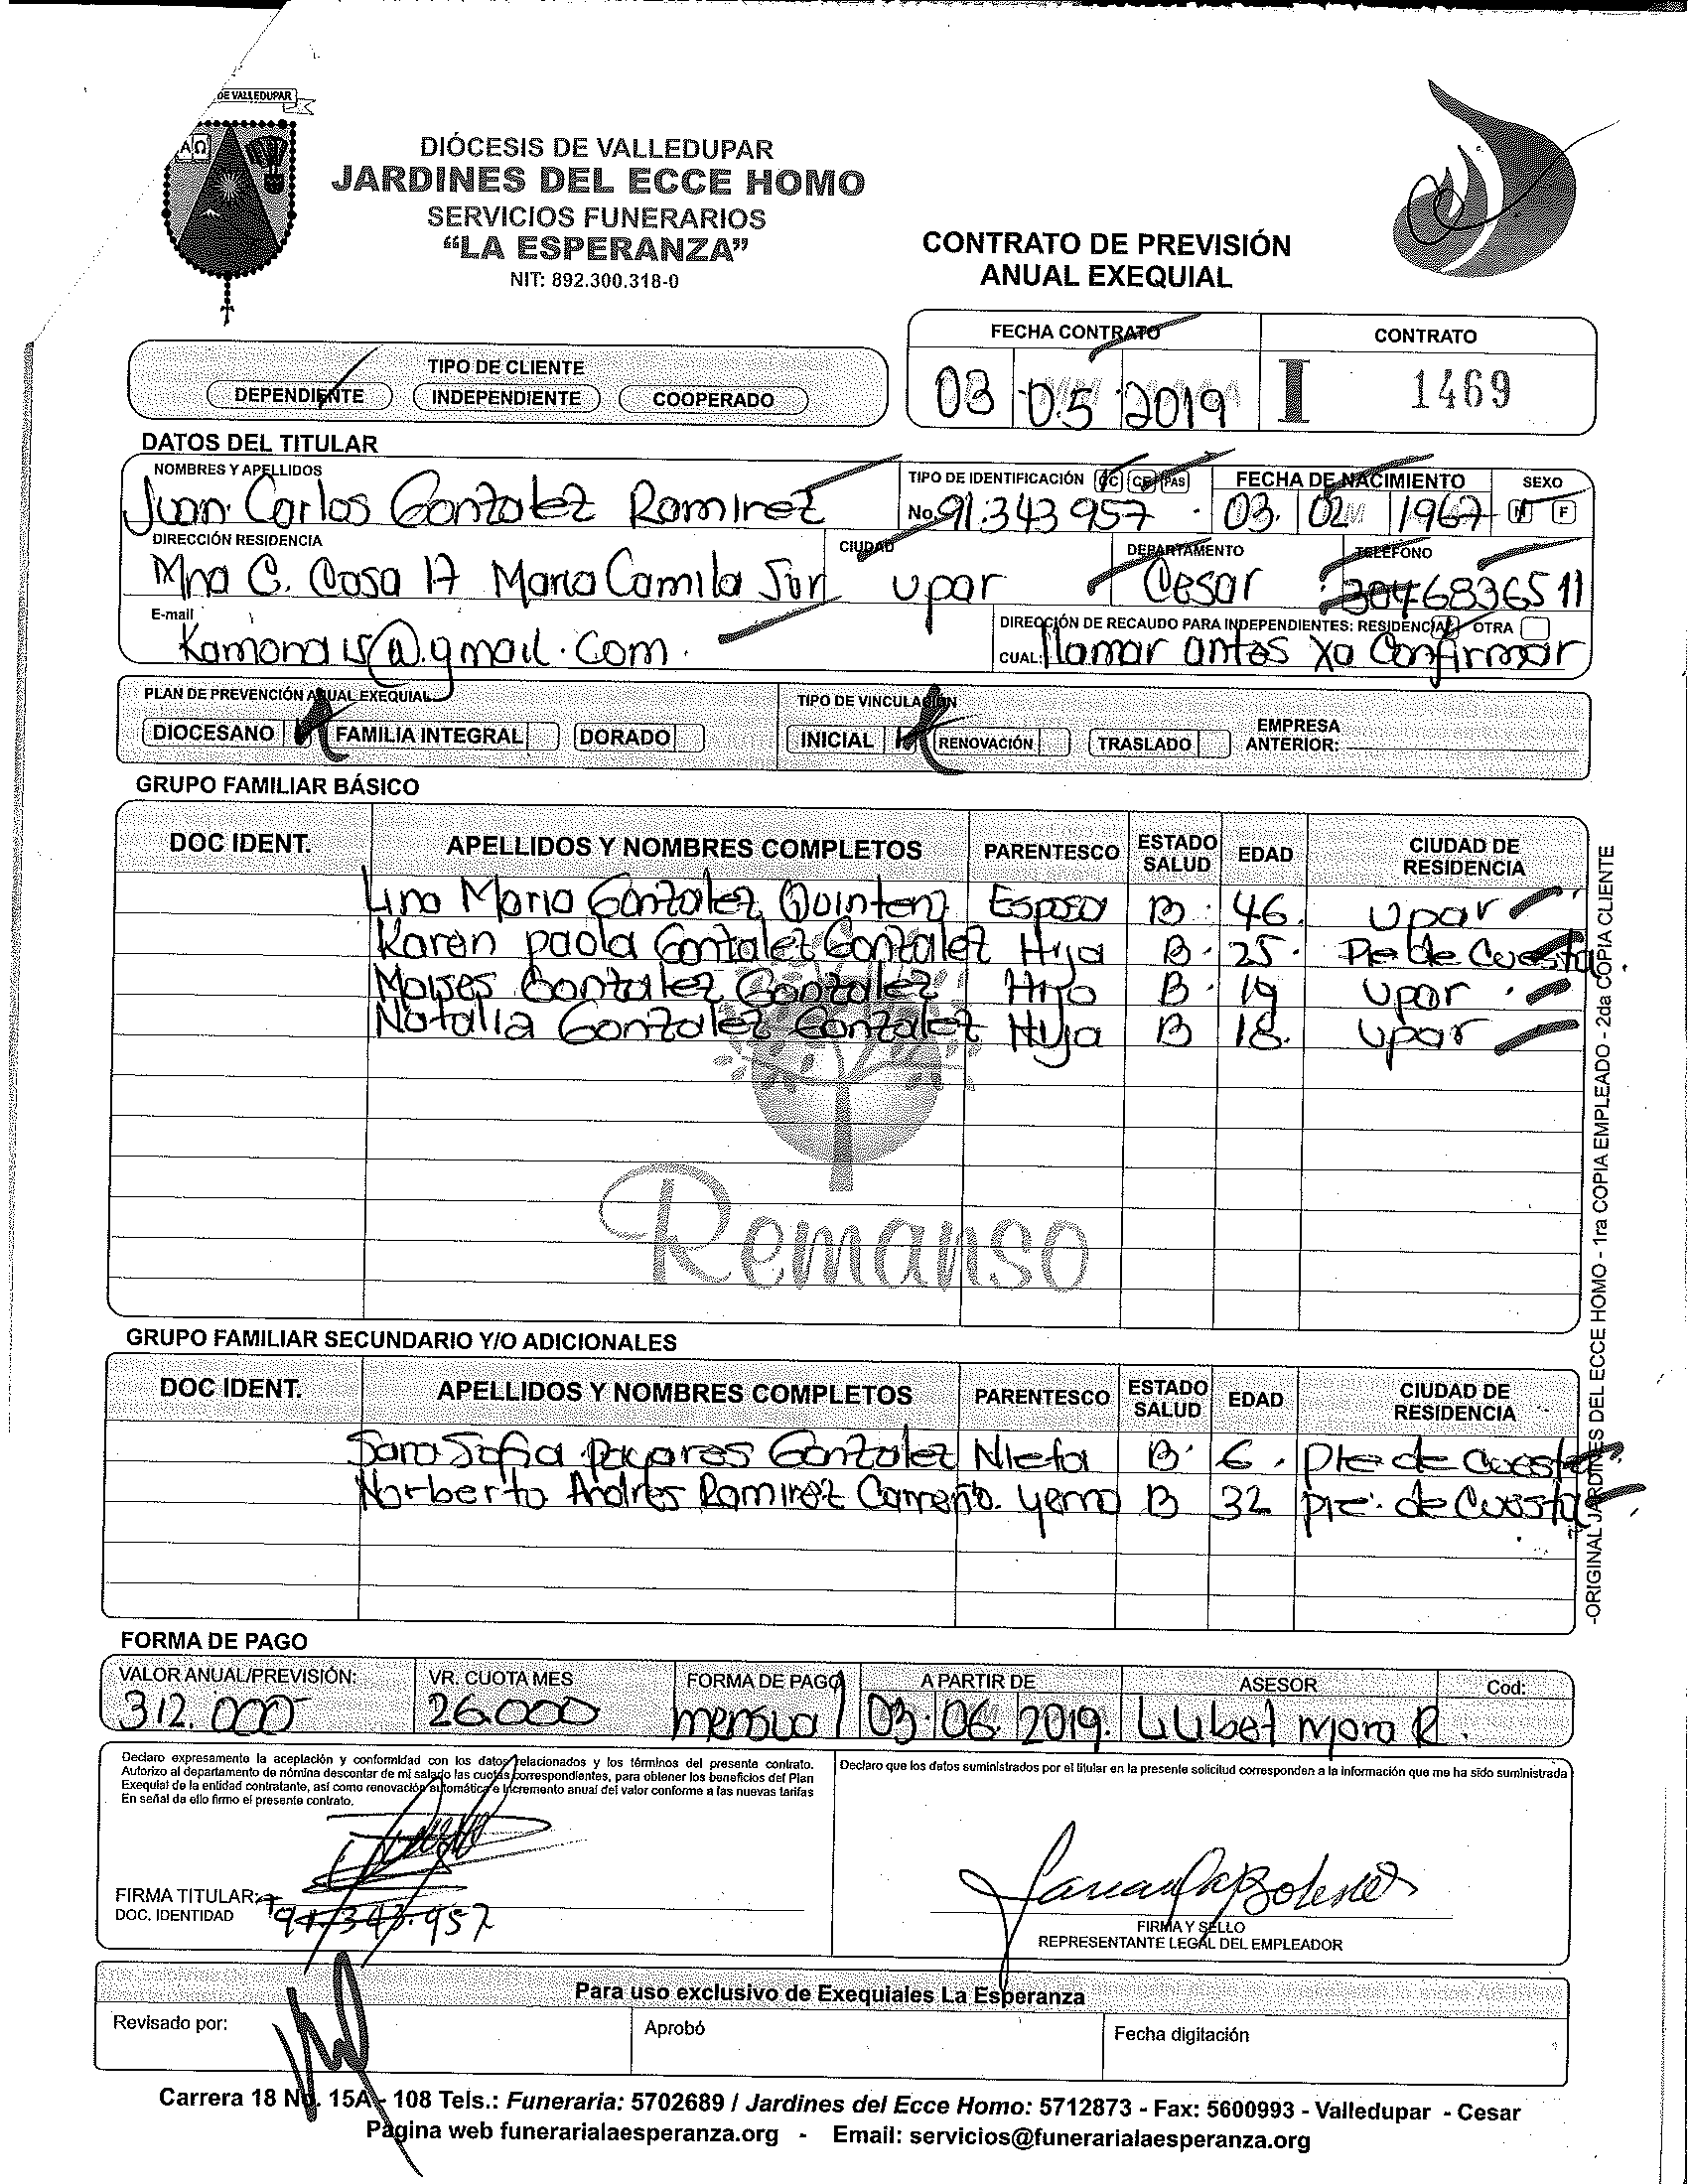 DE VALLEDUPAR
DIÓCESIS DE VALLEDUPAR
JARDINES DEL ECCE HOMO
SERVICIOS FUNERARIOS
“LA ESPERANZA”
NIT: 892.300.318-0
CONTRATO DE PREVISIÓN
ANUAL EXEQUIAL
FECHA CONTRATO CONTRATO
03 05 2019 I 1469
TIPO DE CLIENTE
DEPENDIENTE INDEPENDIENTE COOPERADO
DATOS DEL TITULAR
NOMBRES Y APELLIDOS TIPO DE IDENTIFICACIÓN CC CE PAS FECHA DE NACIMIENTO SEXO
Juan Carlos Gonzalez Ramirez No. 91.343957 03. 02 1967 M F
DIRECCIÓN RESIDENCIA CIUDAD DEPARTAMENTO TELÉFONO
Mna C. Casa 17 Maria Camila Sur Upar Cesar 3046836511
E-mail DIRECCIÓN DE RECAUDO PARA INDEPENDIENTES: RESIDENCIA OTRA
@.gmail.com CUAL: llamar antes xa Confirmar
PLAN DE PREVENCIÓN ANUAL EXEQUIAL TIPO DE VINCULACIÓN
DIOCESANO FAMILIA INTEGRAL DORADO INICIAL RENOVACIÓN TRASLADO EMPRESA ANTERIOR:
GRUPO FAMILIAR BÁSICO
DOC IDENT. APELLIDOS Y NOMBRES COMPLETOS PARENTESCO ESTADO SALUD EDAD CIUDAD DE RESIDENCIA
Lina Maria Gonzalez Quintero Esposa B 46. Upar
Karen paola Gonzalez Gonzalez Hija B. 25. Pie de Cuesta.
Moises Gonzalez Gonzalez Hijo B. 19 Upar.
Natalia Gonzalez Gonzalez Hija B 18. Upar
Remanso
GRUPO FAMILIAR SECUNDARIO Y/O ADICIONALES
DOC IDENT. APELLIDOS Y NOMBRES COMPLETOS PARENTESCO ESTADO SALUD EDAD CIUDAD DE RESIDENCIA
Sara Sofia Gonzalez Nieta B. 6. Pie de Cuesta
Norberto Andres Ramirez Carreño. yerno B 32 pie. de Cuesta
-ORIGINAL JARDINES DEL ECCE HOMO - 1ra COPIA EMPLEADO - 2da COPIA CLIENTE
FORMA DE PAGO
VALOR ANUAL/PREVISIÓN: VR. CUOTA MES FORMA DE PAGO A PARTIR DE ASESOR Cod:
312.000 26.000 mensual 03. 06. 2019. Mora R.
Declaro expresamento la aceptación y conformidad con los datos relacionados y los términos del presente contrato.
Autorizo al departamento de nómina descontar de mi salario las cuotas correspondientes, para obtener los beneficios del Plan
Exequial de la entidad contratante, así como renovación automática e incremento anual del valor conforme a las nuevas tarifas
En señal de ello firmo el presente contrato.
Declaro que los datos suministrados por el titular en la presente solicitud corresponden a la información que me ha sido suministrada
FIRMA TITULAR:
DOC. IDENTIDAD 91.343.957
FIRMA Y SELLO
REPRESENTANTE LEGAL DEL EMPLEADOR
Para uso exclusivo de Exequiales La Esperanza
Revisado por: Aprobó Fecha digitación
Carrera 18 No. 15A - 108 Tels.: Funeraria: 5702689 / Jardines del Ecce Homo: 5712873 - Fax: 5600993 - Valledupar - Cesar
Página web funerarialaesperanza.org - Email: servicios@funerarialaesperanza.org